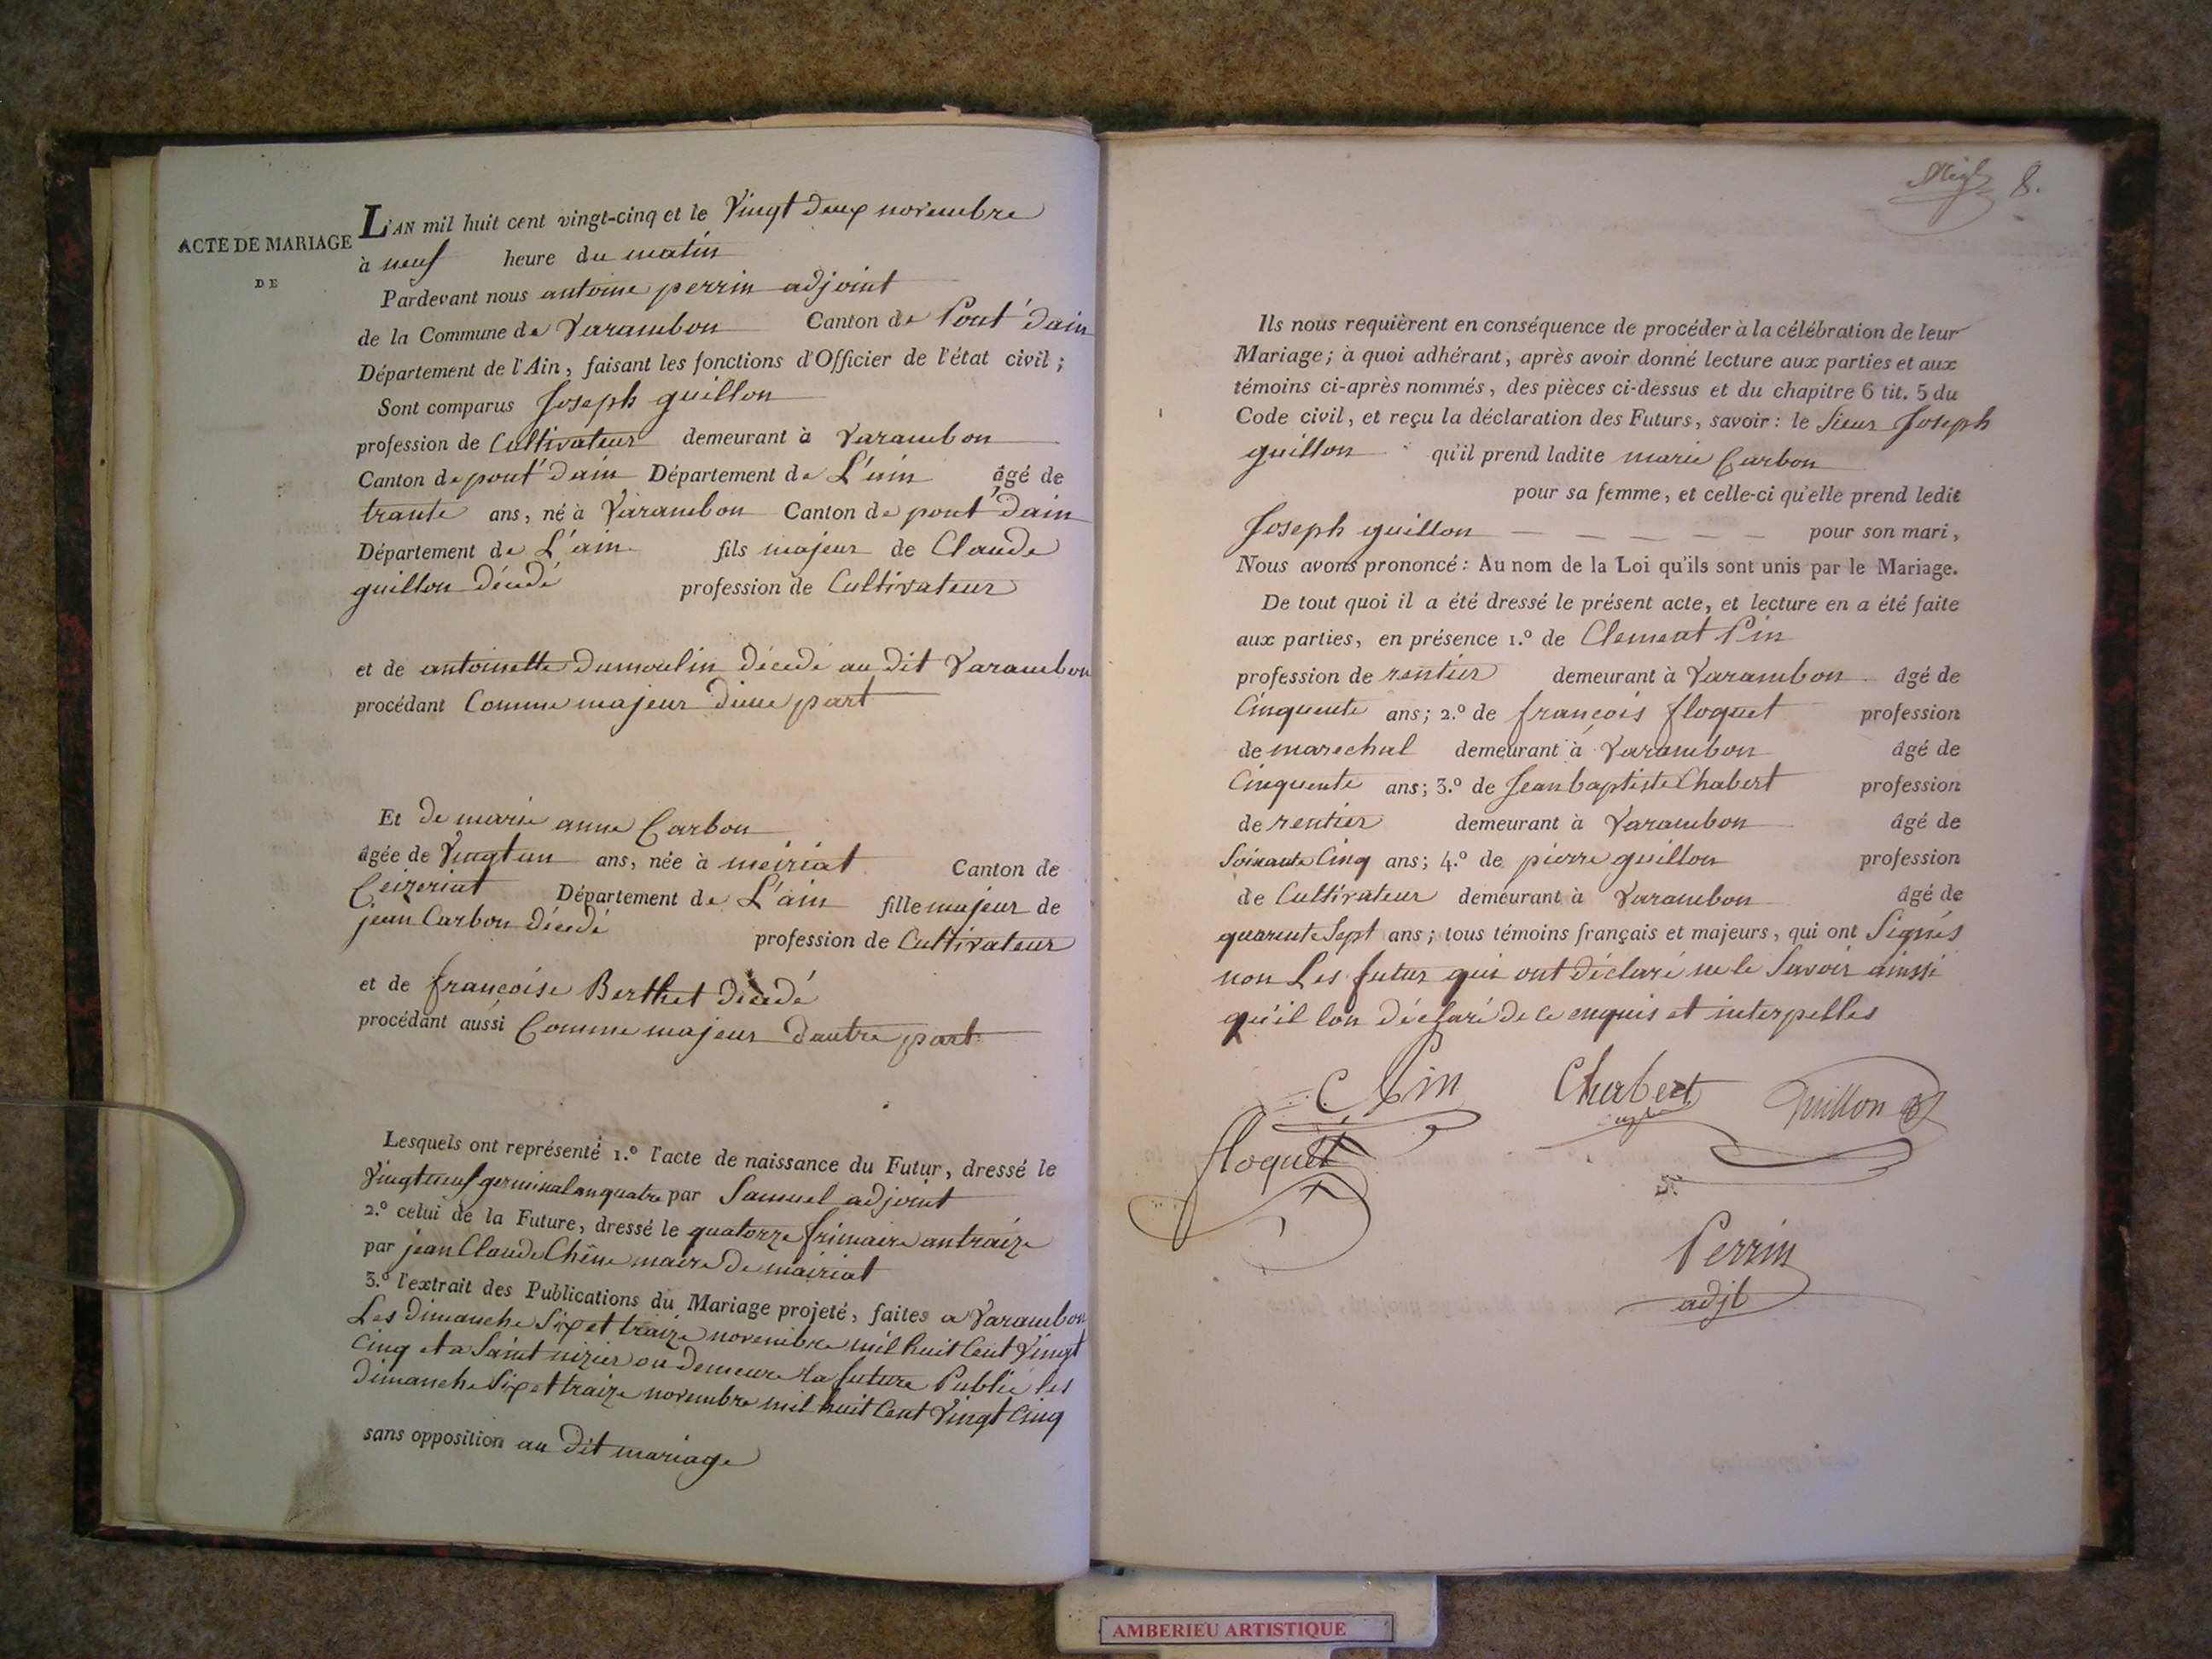 ACTE DE MARIAGE
DE
L'AN mil huit cent vingt-cinq et le Vingt deux novembre
à neuf heure du matin
Pardevant nous antoine perrin adjoint
de la Commune de Varambon Canton de Pont d'ain
Département de l'Ain, faisant les fonctions d'Officier de l'état civil;
Sont comparus Joseph guillon
profession de Cultivateur demeurant à Varambon
Canton de pont d'ain Département de L'ain âgé de
trante ans, né à Varambon Canton de pont d'ain
Département de L'ain fils majeur de Claude
guillon décédé profession de Cultivateur
et de antoinette Dumoulin décédé au dit Varambon
procédant Comme majeur d'une part
Et de marie anne Carbon
âgée de Vingt un ans, née à meiriat Canton de
Ceizeriat Département de L'ain fille majeur de
jean Carbon décédé profession de Cultivateur
et de francoise Berthet décédé
procédant aussi Comme majeur dautre part
Lesquels ont représenté 1.º l'acte de naissance du Futur, dressé le
Vingt neuf germinal an quatre par Samuel adjoint
2.º celui de la Future, dressé le quatorze frimaire an traize
par jean Claude Chêne maire de mairiat
3.º l'extrait des Publications du Mariage projeté, faites a Varambon
Les dimanche Six et traize novembre mil huit Cent Vingt
Cinq et a Saint nizier ou demeure la future Publié les
dimanche Six et traize novembre mil huit Cent Vingt Cinq
sans opposition au dit mariage
8.
Ils nous requièrent en conséquence de procéder à la célébration de leur
Mariage; à quoi adhérant, après avoir donné lecture aux parties et aux
témoins ci-après nommés, des pièces ci-dessus et du chapitre 6 tit. 5 du
Code civil, et reçu la déclaration des Futurs, savoir: le Sieur Joseph
guillon qu'il prend ladite marie Carbon
pour sa femme, et celle-ci qu'elle prend ledit
Joseph guillon — — — — — — pour son mari,
Nous avons prononcé: Au nom de la Loi qu'ils sont unis par le Mariage.
De tout quoi il a été dressé le présent acte, et lecture en a été faite
aux parties, en présence 1.º de Clement Pin
profession de rentier demeurant à Varambon âgé de
Cinquente ans; 2.º de françois floquet profession
de marechal demeurant à Varambon âgé de
Cinquente ans; 3.º de Jean baptiste Chabert profession
de rentier demeurant à Varambon âgé de
Soixante Cinq ans; 4.º de pierre guillon profession
de Cultivateur demeurant à Varambon âgé de
quarente Sept ans; tous témoins français et majeurs, qui ont Signés
non Les futur qui ont déclaré ne le Savoir ainssi
qu'il lon déclaré de ce enquis et interpelles
C Pin Chabert Guillon
floquet
Perrin
adjt
AMBERIEU ARTISTIQUE